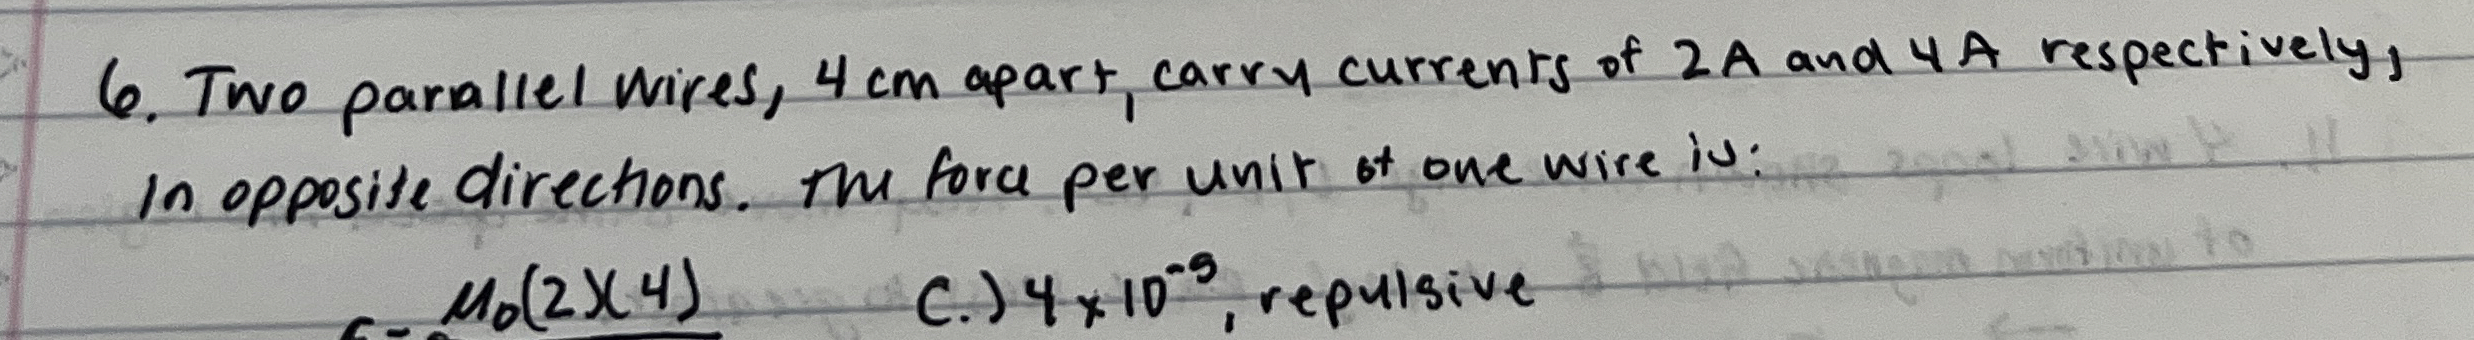 6. Two parallel wires, 4 cm apart, carry currents of 2A and 4A respectively,
in opposite directions. The force per unit of one wire is:
F = μ₀(2)(4) C.) 4 x 10⁻⁵, repulsive